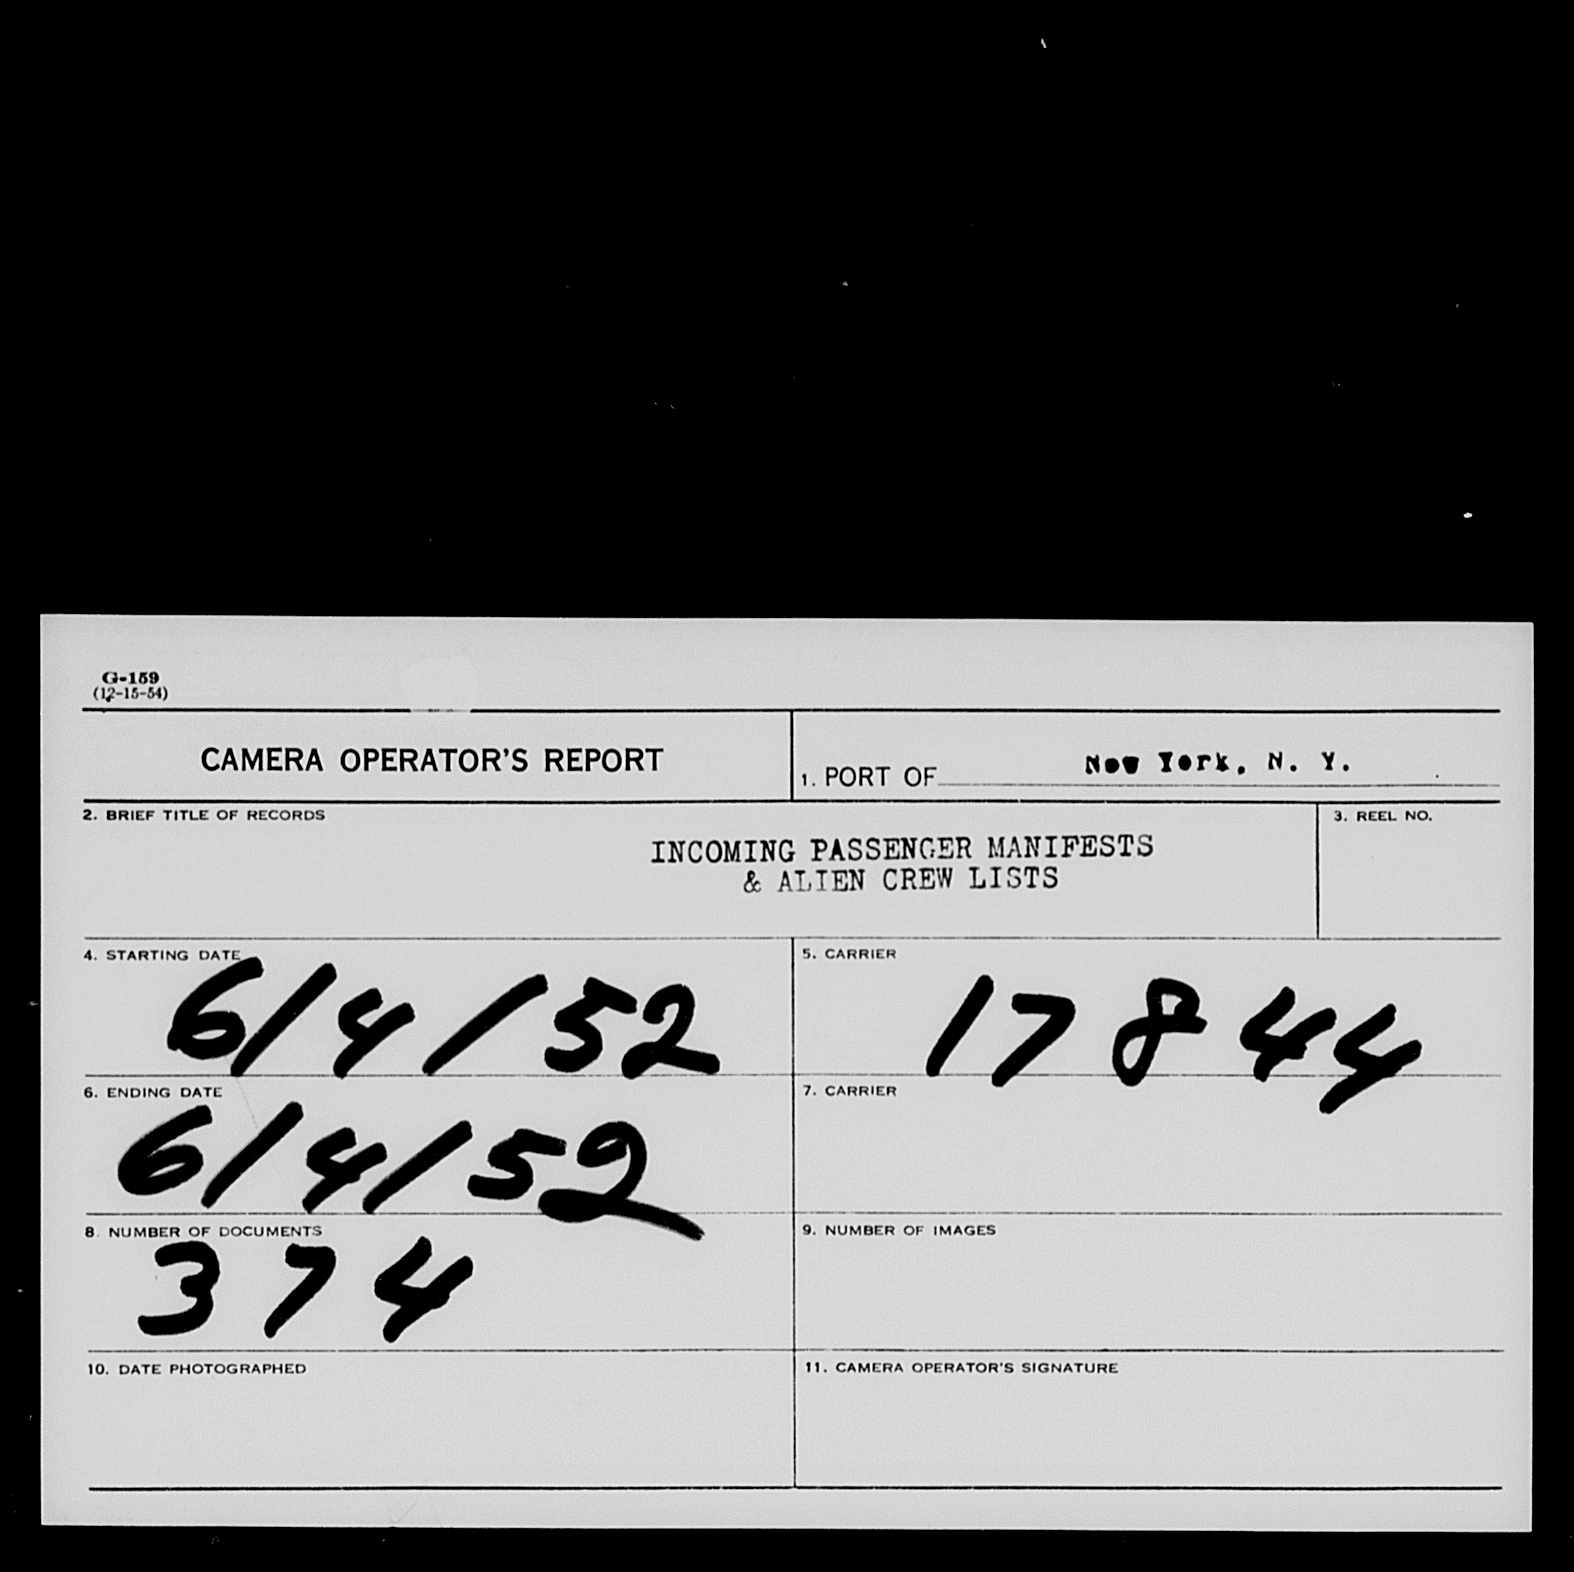 G-159
(12-15-54)
CAMERA OPERATOR'S REPORT
1. PORT OF New York, N. Y.
2. BRIEF TITLE OF RECORDS
INCOMING PASSENGER MANIFESTS
& ALIEN CREW LISTS
3. REEL NO.
4. STARTING DATE
6/4/52
5. CARRIER
17844
6. ENDING DATE
6/4/52
7. CARRIER
8. NUMBER OF DOCUMENTS
374
9. NUMBER OF IMAGES
10. DATE PHOTOGRAPHED
11. CAMERA OPERATOR'S SIGNATURE